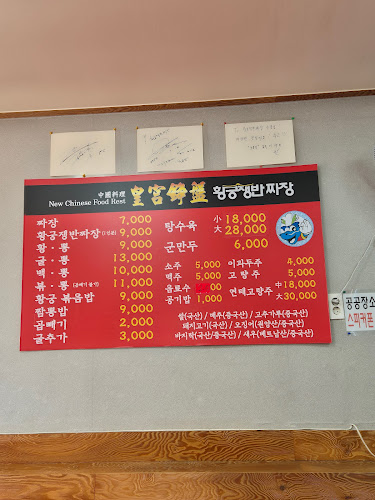 中國料理
New Chinese Food Rest
皇宮錚盤 황궁쟁반짜장
짜장 7,000
황궁쟁반짜장(1인분) 9,000
황·통 9,000
굴·통 13,000
백·통 10,000
볶·통 (곱빼기 불가) 11,000
황궁 볶음밥 9,000
짬뽕밥 9,000
곱빼기 2,000
굴추가 3,000
탕수육 小 18,000
大 28,000
군만두 6,000
소주 5,000
맥주 5,000
음료수
공기밥 1,000
이과두주 4,000
고량주 5,000
연태고량주 中 18,000
大 30,000
쌀(국산) / 배추(중국산) / 고추가루(중국산)
돼지고기(국산) / 오징어(원양산/중국산)
바지락(국산/중국산) / 새우(베트남산/중국산)
공공장소
스피커폰